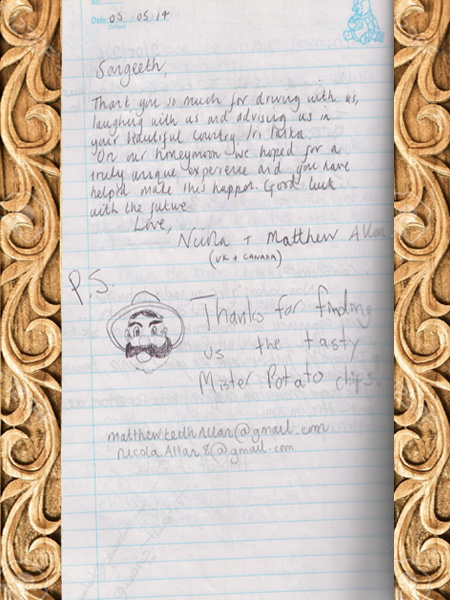 Date: 05 05 14
Sangeeth,
Thank you so much for driving with us,
laughing with us and advising us in
your beautiful country Sri Lanka
On our honeymoon we hoped for a
truly unique experience and you have
helped make this happen. Good luck
with the future
Love,
Nicola + Matthew Allan
(UK + CANADA)
P.S.
Thanks for finding
us the tasty
Mister Potato chips.
matthewkeithallan@gmail.com
nicolaAllan8@gmail.com